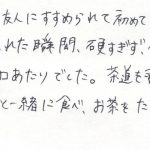 友人にすすめられて初めて
れた瞬間、硬すぎず、
口あたりでした。茶道も
と一緒に食べ、お茶をた